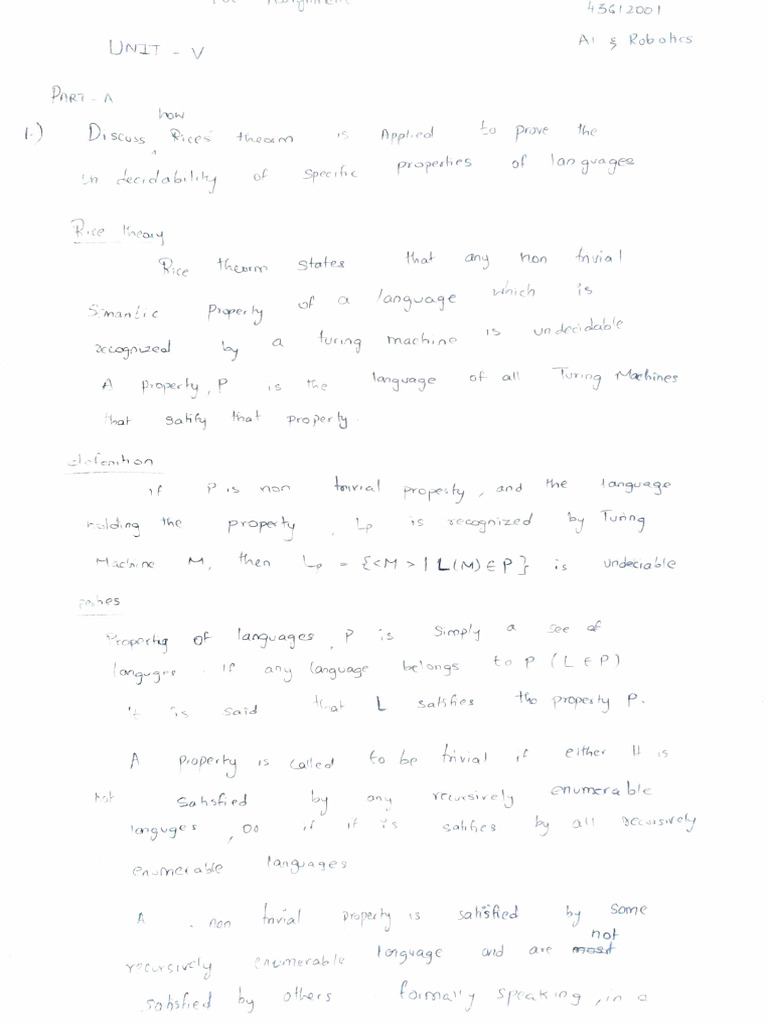 Assignment
43612001
UNIT - V
AI & Robotics
PART - A
how
1.) Discuss Rices theorm is Applied to prove the
un decidability of specific properties of languages
Rice theory
Rice theorm states that any non trivial
Simantic Property of a language which is
recognized by a turing machine is undecidable
A property, P is the language of all Turing Machines
that satify that property.
If P is non trivial property, and the language
holding the property, Lp is recognized by Turing
Machine M, then Lp = {<M> | L(M) ∈ P} is undeciable
Property of languages, P is simply a see of
languges. if any language belongs to P (L ∈ P)
it is said that L satisfies the property P.
A property is called to be trivial if either it is
not satisfied by any recursively enumerable
languges, or if it is satifies by all recursively
enumerable languages
A non trivial property is satisfied by some
not
recursively enumerable language and are most
satisfied by others formally speaking, in a